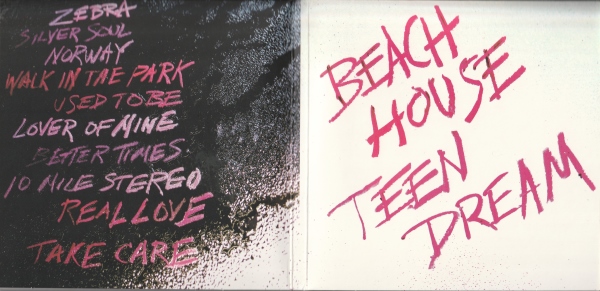 ZEBRA
SILVER SOUL
NORWAY
WALK IN THE PARK
USED TO BE
LOVER OF MINE
BETTER TIMES
10 MILE STEREO
REAL LOVE
TAKE CARE
BEACH
HOUSE
TEEN
DREAM